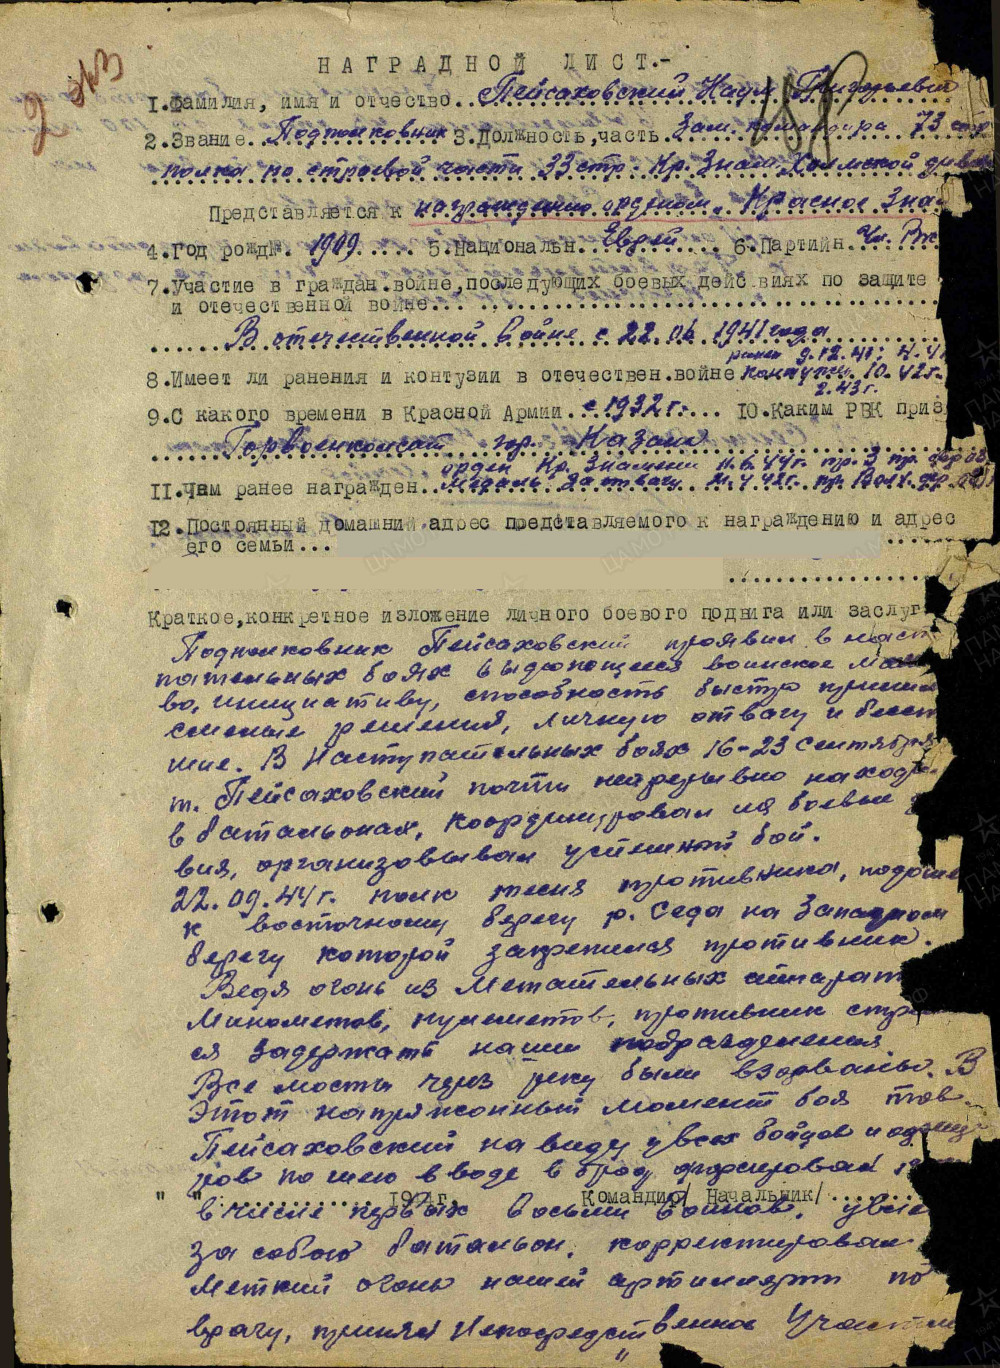 НАГРАДНОЙ ЛИСТ.-
1.Фамилия, имя и отчество..Пейсаховский Наум Григорьевич
2.Звание..Подполковник 3.Должность,часть Зам. командира 73 стр
полка по строевой части 33 стр. Кр. Знам. Холмской див
Представляется к награждению орденом „Красное Зна
4.Год рожд. 1909..... 5.Национальн..Еврей..... 6.Партийн. Чл. Вк
7.Участие в граждан.войне,последующих боевых действиях по защите
и отечественной войне....
В отечественной войне с 22.06 1941 года
ранен 9.12.41;
8.Имеет ли ранения и контузии в отечествен.войне контужен. 10.42г.
2.43г.
9.С какого времени в Красной Армии..с 1932г.... 10.Каким РВК приз
Горвоенкомат гор. Казань
орден Кр. Знамени пр. 3 пр.
11.Чем ранее награжден..Медаль За отвагу пр. Волх. фр.
12.Постоянный домашний адрес представляемого к награждению и адрес
его семьи...
Краткое,конкретное изложение личного боевого подвига или заслуг
Подполковник Пейсаховский проявил в наст
пательных боях выдающееся воинское
во, инициативу, способность быстро приним
смелые решения, личную отвагу и бесст
шие. В Наступательных боях 16-23 Сентября
т. Пейсаховский почти непрерывно находи
в батальонах, координировал их боевые
вия, организовывал успешный бой.
22.09.44г. полк тесня противника, подошел
к восточному берегу р. Седа на Западном
берегу которой закрепился противник.
Ведя огонь из Метательных аппарат
Минометов, пулеметов, противник стр
ся задержать наши подразделения.
Все мосты через реку были взорваны. В
Этот напряжонный момент боя тов.
Пейсаховский на виду у всех бойцов и офице
ров по шею в воде в брод форсировал
" "............ 1944г. Командир/ Начальник/.......
в числе первых восьми воинов, увле
за собою батальон, корректировал
меткий огонь нашей артиллерии по
врагу, принял Непосредственное Участие